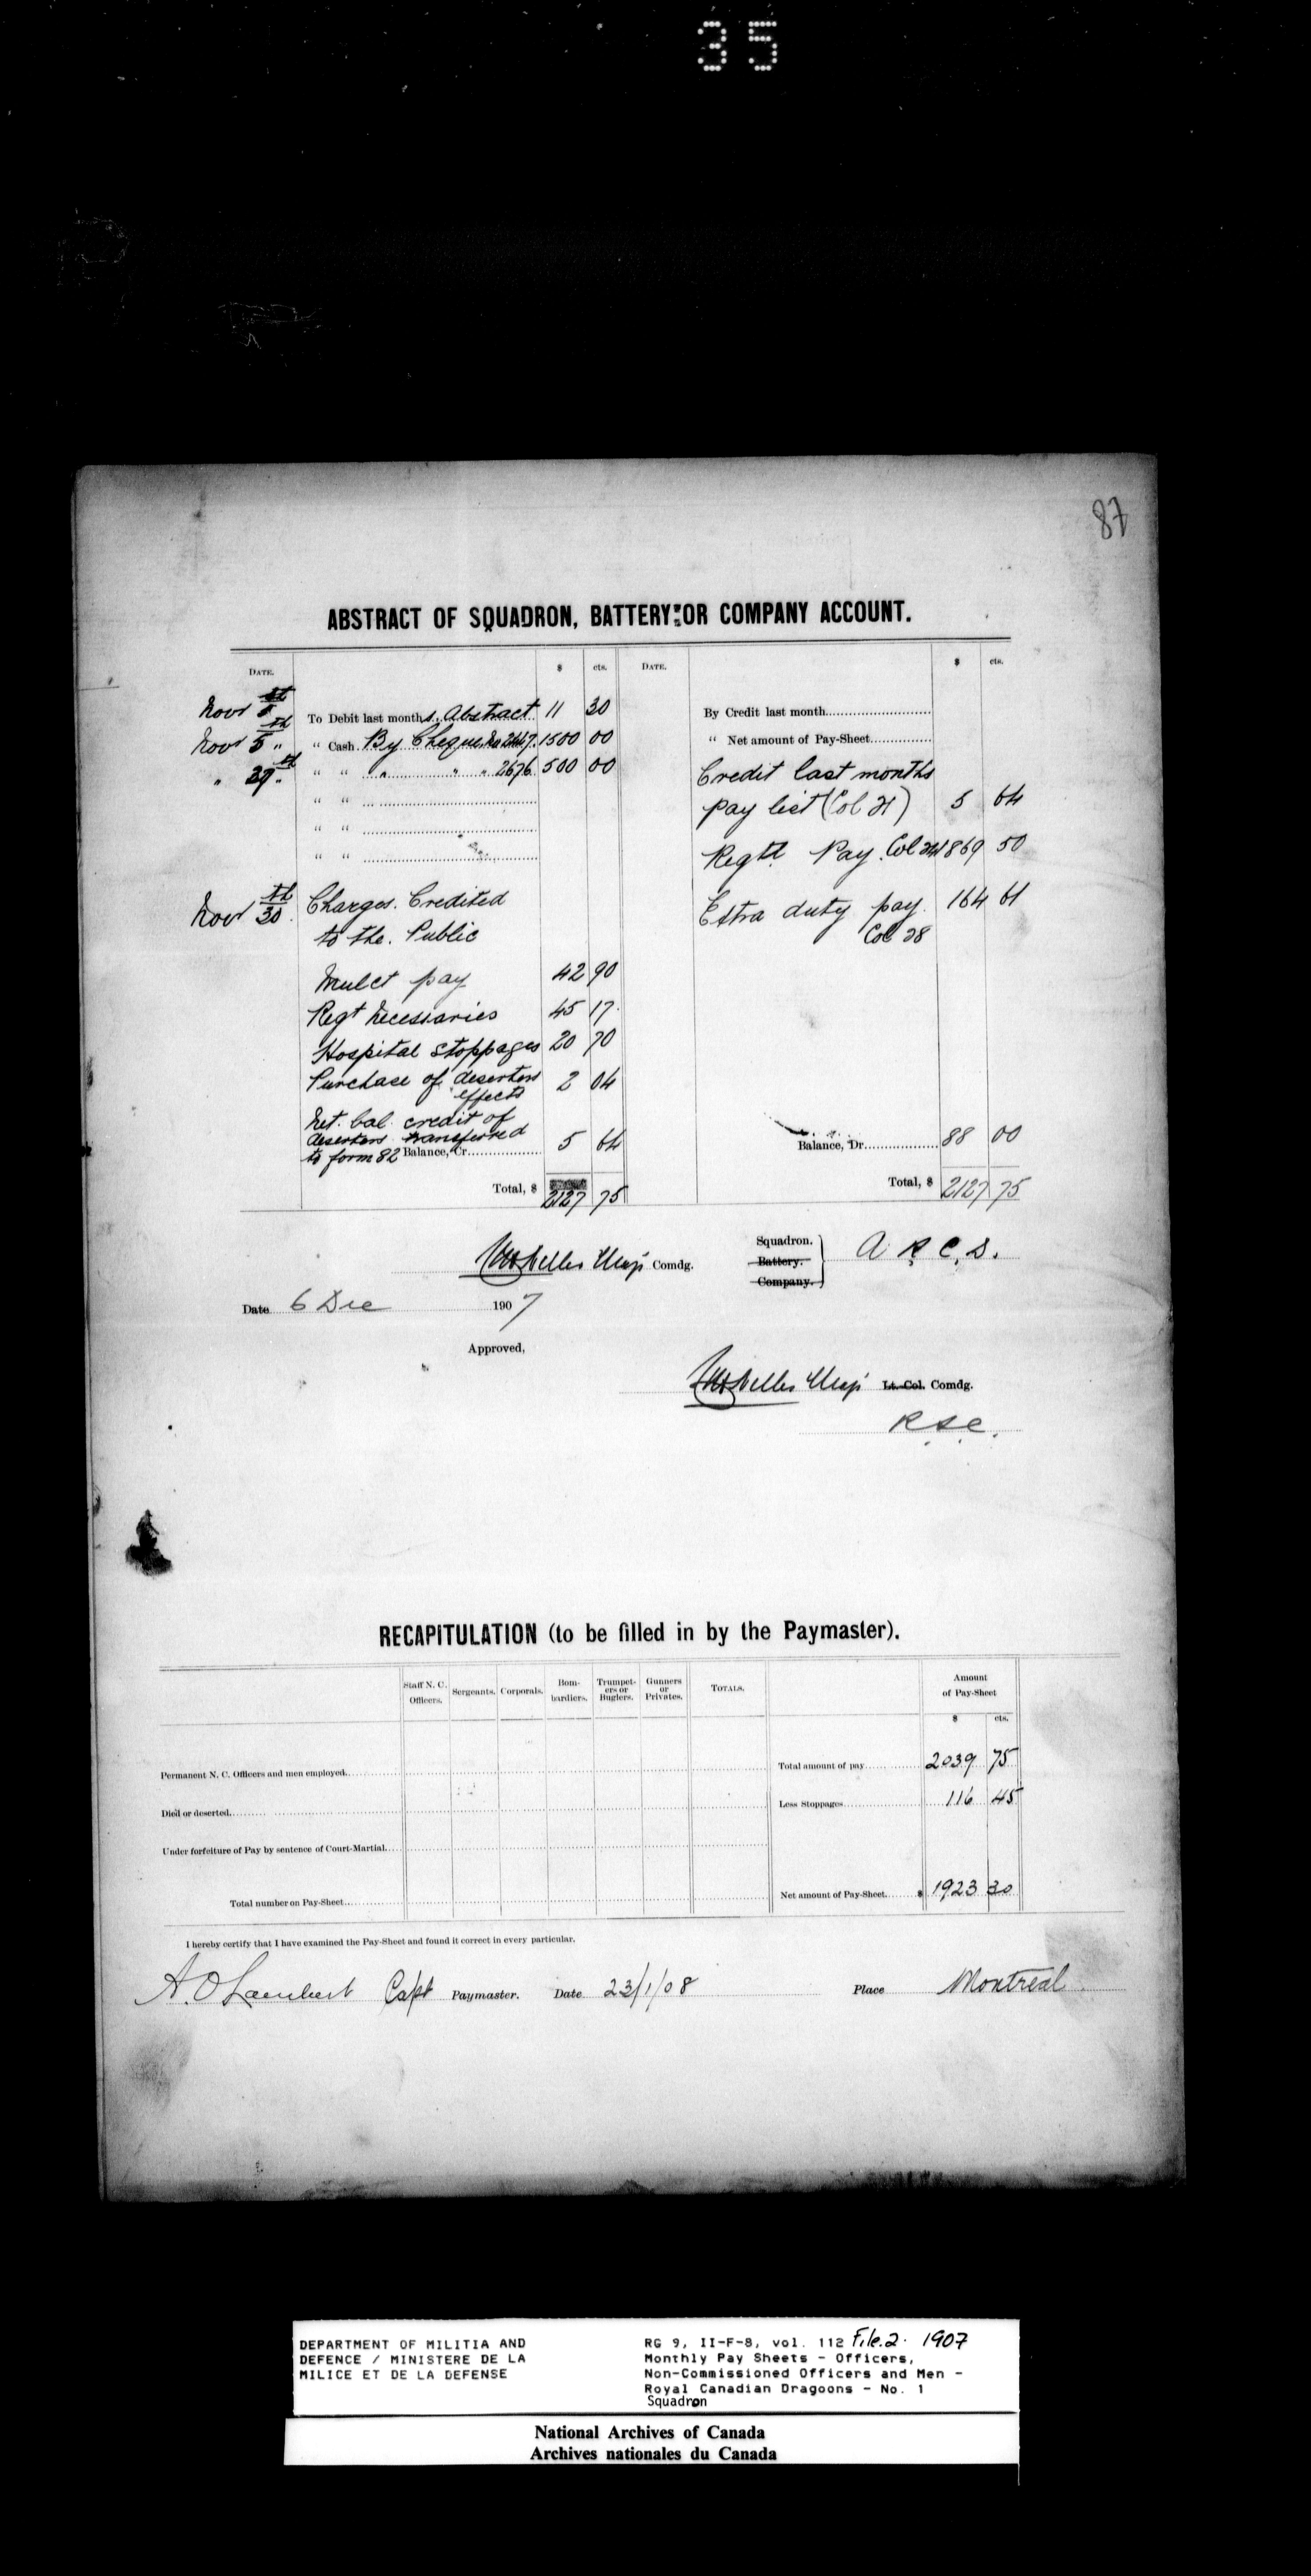 35
87
ABSTRACT OF SQUADRON, BATTERY OR COMPANY ACCOUNT.
DATE. $ cts. DATE. $ cts.
Novr 5th To Debit last months Abstract 11 30
By Credit last month
Novr 5th " Cash By Cheque No 2447. 1500 00
" Net amount of Pay-Sheet
" 29th " " " " " 2676 500 00
Credit last months
" "
pay list (Col 21) 5 64
" "
" "
Regtl Pay Col 24 1869 50
Novr 30th Charges Credited
to the Public
Extra duty pay 164 61
Col 28
Mulct pay 42 90
Regt Necessaries 45 17
Hospital stoppages 20 70
Purchase of deserters
effects 2 04
Net bal credit of
deserters transferred
to form 82 Balance, Cr 5 64
Balance, Dr 88 00
Total, $ 2127 75
Total, $ 2127 75
Nelles Maj Comdg.
Squadron.
Battery.
Company.
A R.C.D.
Date 6 Dec 1907
Approved,
Nelles Maj Lt.-Col. Comdg.
RECAPITULATION (to be filled in by the Paymaster).
Staff N. C. Officers. Sergeants. Corporals. Bom-bardiers. Trumpet-ers or Buglers. Gunners or Privates. TOTALS. Amount of Pay-Sheet
$ cts.
Permanent N. C. Officers and men employed
Total amount of pay 2039 75
Died or deserted
Less Stoppages 116 45
Under forfeiture of Pay by sentence of Court-Martial
Total number on Pay-Sheet
Net amount of Pay-Sheet $ 1923 30
I hereby certify that I have examined the Pay-Sheet and found it correct in every particular.
A. O Lambert Capt Paymaster. Date 23/1/08 Place Montreal
DEPARTMENT OF MILITIA AND
DEFENCE / MINISTERE DE LA
MILICE ET DE LA DEFENSE
RG 9, II-F-8, vol. 112 File 2. 1907
Monthly Pay Sheets - Officers,
Non-Commissioned Officers and Men -
Royal Canadian Dragoons - No. 1
Squadron
National Archives of Canada
Archives nationales du Canada